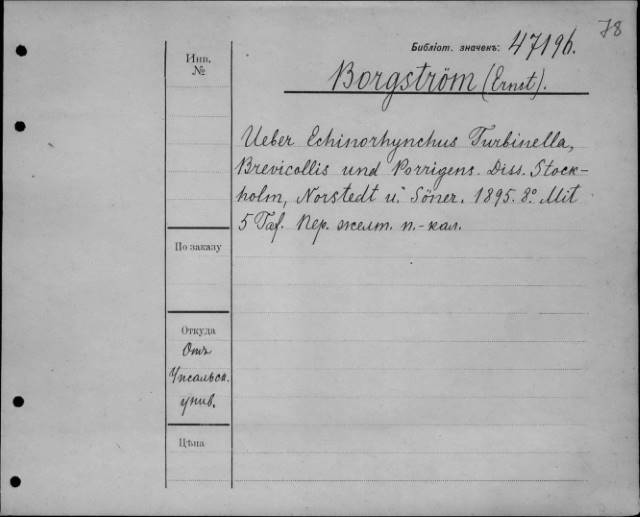 78
Библіот. значекъ: 47196.
Инв.
№
Borgström (Ernst).
Ueber Echinorhynchus Turbinella,
Brevicollis und Porrigens. Diss. Stock-
holm, Norstedt u. Söner. 1895. 8º. Mit
5 Taf. Пер. желт. п.-кал.
По заказу
Откуда
Отъ
Упсальск.
унив.
Цѣна